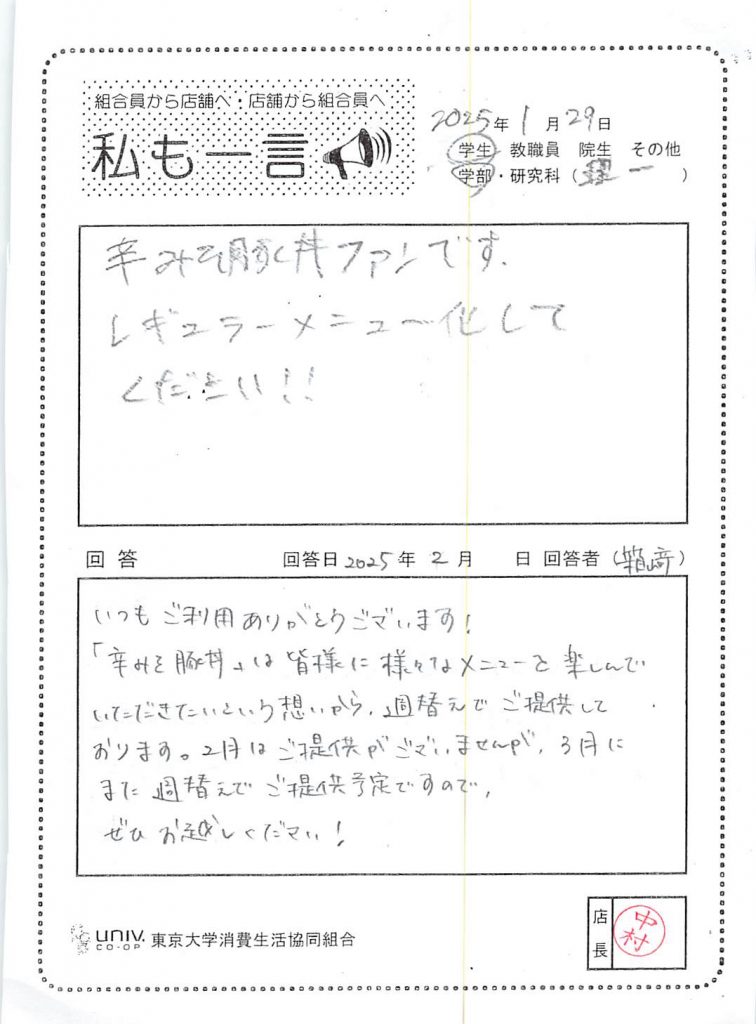 組合員から店舗へ・店舗から組合員へ
私も一言
2025年1月29日
学生 教職員 院生 その他
学部・研究科(理一)
辛みそ豚丼ファンです.
レギュラーメニュー化して
ください!!
回答 回答日2025年2月 日 回答者(箱崎)
いつもご利用ありがとうございます!
「辛みそ豚丼」は皆様に様々なメニューを楽しんで
いただきたいという想いから、週替えでご提供して
おります。2月はご提供がございませんが、3月に
また週替えでご提供予定ですので、
ぜひお越しください!
univ.
CO-OP
東京大学消費生活協同組合
店長
中村